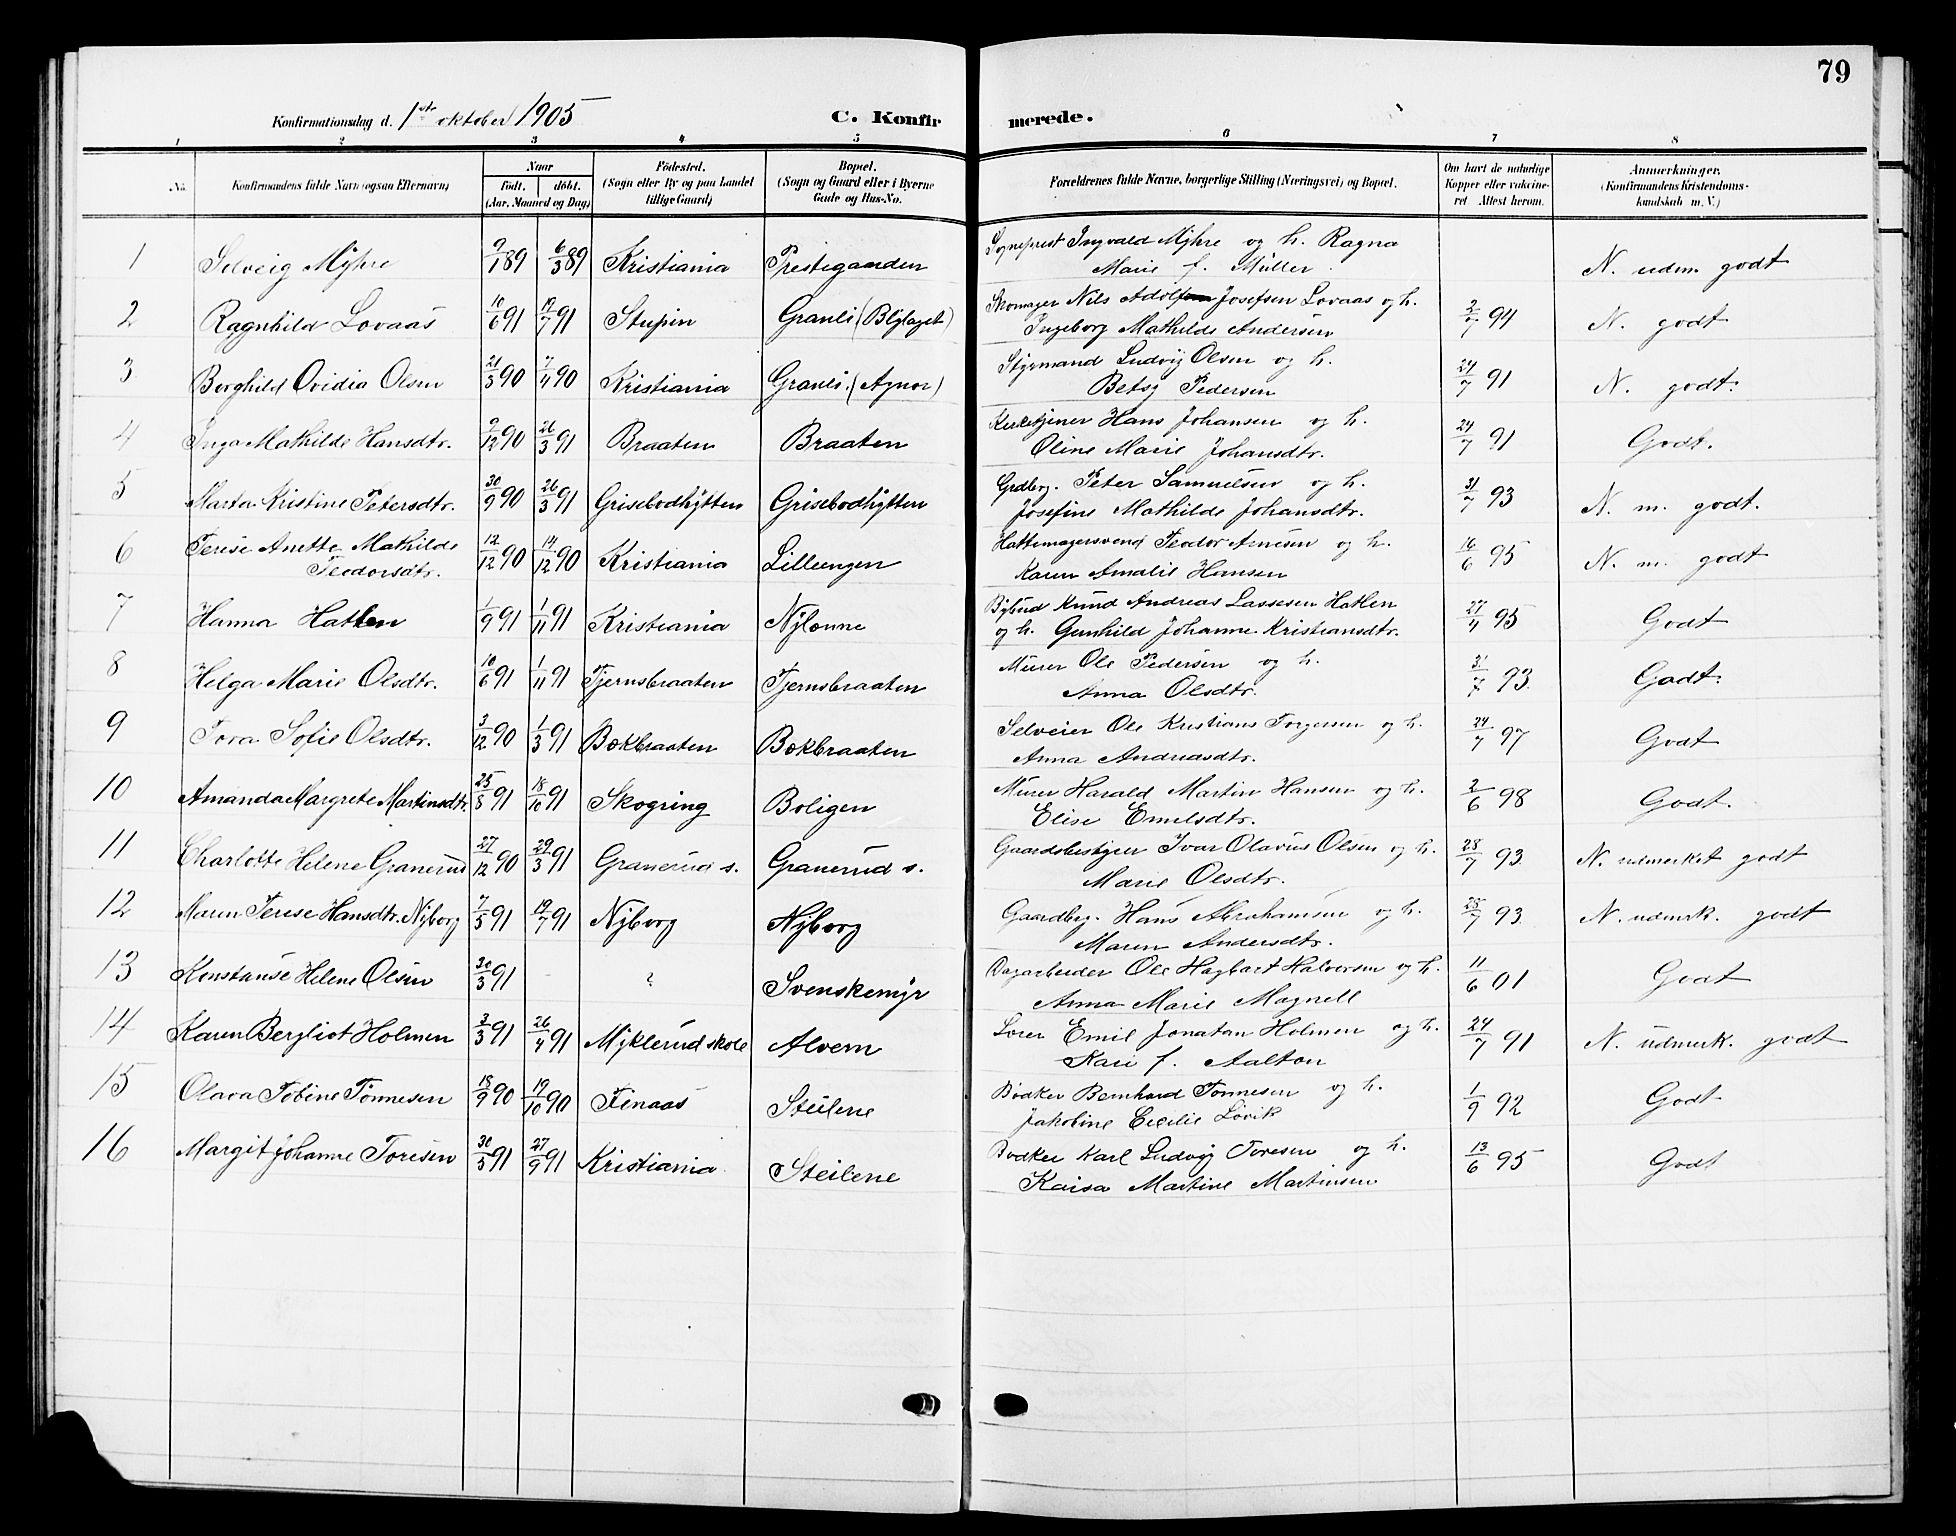 79
Konfirmationsdag d. 1ste oktober 1905 C. Konfirmerede.
1 2 3 4 5 6 7 8
No. Konfirmandens fulde Navn (ogsaa Efternavn) Naar født. døbt. (Aar, Maaned og Dag) Fødested. (Sogn eller By og paa Landet tillige Gaard) Bopæl. (Sogn og Gaard eller i Byerne Gade og Hus-No. Forældrenes fulde Navne, borgerlige Stilling (Næringsvei) og Bopæl. Om havt de naturlige Kopper eller vaccineret Attest herom. Anmærkninger. (Konfirmandens Kristendomskundskab m. V.)
1 Solveig Myhre 9/1 89 6/3 89 Kristiania Prestegaarden Sogneprest Ingvald Myhre og h. Ragna
Marie f. Müller. N. udm. godt
2 Ragnhild Lovaas 10/6 91 19/7 91 Stupin Granli (Blylaget) Skomager Nils Adolf Josefsen Lovaas og h.
Ingeborg Mathilde Andersen 2/7 94 N. godt
3 Borghild Ovidia Olsen 21/3 90 7/4 90 Kristiania Granli. (Agnor) Styrmand Ludvig Olsen og h.
Betsy Pedersen 24/7 91 N. godt.
4 Inga Mathilde Hansdtr. 9/12 90 26/3 91 Braaten Braaten Kirketjener Hans Johansen og h.
Oline Marie Johansdtr. 24/7 91 Godt.
5 Marta Kristine Petersdtr. 30/9 90 26/3 91 Grisebodhytten Grisebodhytten Grdbrg. Peter Samuelsen og h.
Josefine Mathilde Johansdtr. 31/7 93 N. m. godt.
6 Terese Anette Mathilde
Teodorsdtr. 12/12 90 14/12 90 Kristiania Lilleengen Hattemagersvend Teodor Arnesen og h.
Karen Amalie Hansen 16/6 95 N. m. godt
7 Hanna Hatlen 1/9 91 1/11 91 Kristiania Nylønne Bybud Knud Andreas Lassesen Hatlen
og h. Gunhild Johanne Kristiansdtr. 27/4 95 Godt
8 Helga Marie Olsdtr. 10/6 91 1/11 91 Tjernsbraaten Tjernsbraaten Murer Ole Pedersen og h.
Anna Olsdtr. 31/7 93. Godt.
9 Tora Sofie Olsdtr. 3/12 90 1/3 91 Bøkbraaten Bøkbraaten Selveier Ole Kristians Torgersen og h.
Anna Andreasdtr. 24/7 97 Godt
10 Amanda Margrete Martinsdtr. 25/8 91 18/10 91 Skogring Boligen Murer Harald Martin Hansen og h.
Elise Emilsdtr. 2/6 98 Godt.
11 Charlotte Helene Granerud 27/12 90 29/3 91 Granerud s. Granerud s. Gaardsbestyrer Ivar Olavus Olsen og h.
Marie Olsdtr. 28/7 93. N. udmerket godt
12 Maren Terese Hansdtr. Nyborg 7/5 91 19/7 91 Nyborg Nyborg Gaardbrg. Hans Abrahamsen og h.
Maren Andersdtr. 28/7 93. N. udmerk. godt
13 Konstanse Helene Olsen 30/3 91 - ? Svenskemyr Dagarbeider Ole Hagbart Halvorsen og h.
Anna Marie Magnell 11/6 01 Godt
14 Karen Bergliot Holmen 3/3 91 26/4 91 Myklerud skole Alvern Lærer Emil Jonatan Holmen og h.
Kari f. Aalton 24/7 91 N. udmerk. godt
15 Olava Tobine Tønnesen 18/9 90 19/10 90 Finaas Steilene Bødker Bernhard Tønnesen og h.
Jakobine Cecilie Løvik 1/9 92 Godt
16 Margit Johanne Toresen 30/5 91 27/9 91 Kristiania. Steilene Bødker Karl Ludvig Toresen og h.
Kaisa Martine Martinsen 13/6 95 Godt